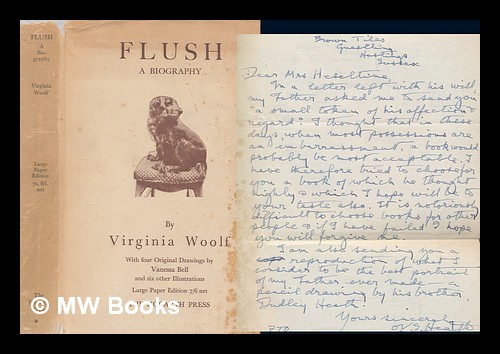 FLUSH
A
Bio-
graphy
Virginia
Woolf
Large
Paper
Edition
7s. 6d.
net
The
FLUSH
A BIOGRAPHY
By
Virginia Woolf
With four Original Drawings by
Vanessa Bell
and six other Illustrations
Large Paper Edition 7/6 net
HOGARTH PRESS
Brown Tiles
Guestling
Hastings
Sussex
Dear Mrs Heseltine,
In a letter left with his will
my Father asked me to send you
"a small token of his affection &
regard". I thought that in these
days, when most possessions are
an embarrassment, a book would
probably be most acceptable. I
have therefore tried to choose for
you a book of which he thought
highly & which I hope will be to
your taste also. It is notoriously
difficult to choose books for other
people & if I have failed I hope
you will forgive me.
I am also sending you a
reproduction of what I
consider to be the best portrait
of my Father ever made — a
pencil drawing by his brother,
Dudley Heath.
Yours sincerely
Heath
PTO
© MW Books